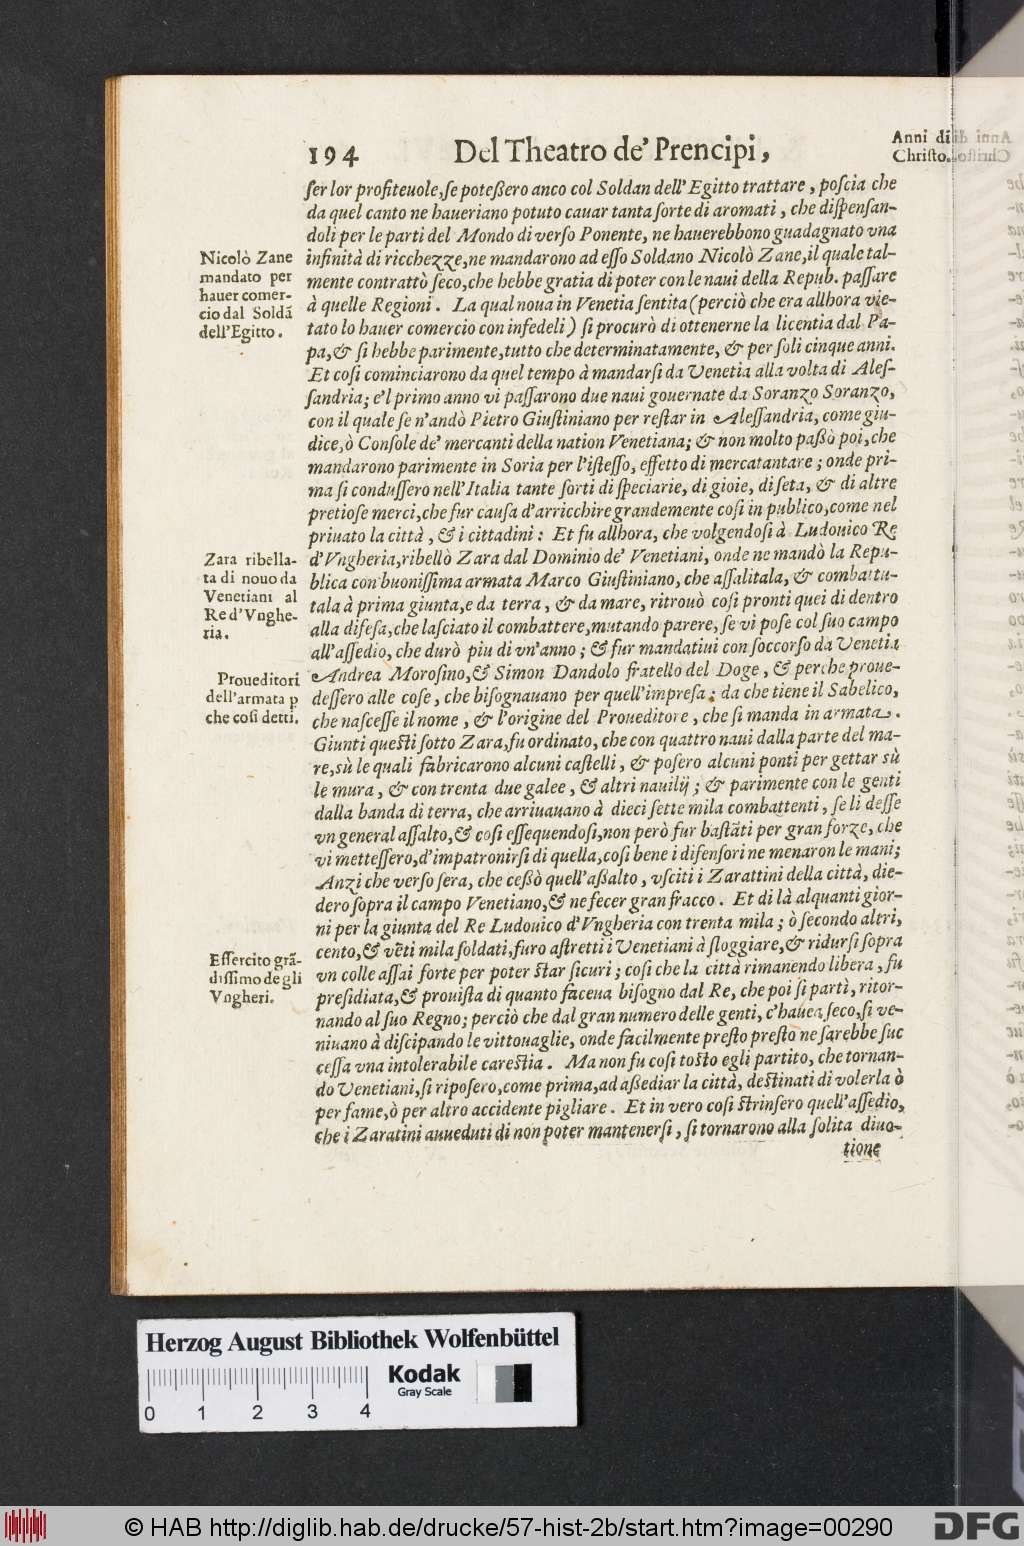 194 Del Theatro de' Prencipi, Anni di
Christo.
ſer lor profiteuole, ſe poteßero anco col Soldan dell'Egitto trattare, poſcia che
da quel canto ne haueriano potuto cauar tanta ſorte di aromati, che diſpenſan-
doli per le parti del Mondo di verſo Ponente, ne hauerebbono guadagnato vna
infinità di ricchezze, ne mandarono ad eſſo Soldano Nicolò Zane, il quale tal-
mente contrattò ſeco, che hebbe gratia di poter con le naui della Repub. paſſare
à quelle Regioni. La qual noua in Venetia ſentita (perciò che era allhora vie-
tato lo hauer comercio con infedeli) ſi procurò di ottenerne la licentia dal Pa-
pa, & ſi hebbe parimente, tutto che determinatamente, & per ſoli cinque anni.
Et coſi cominciarono da quel tempo à mandarſi da Venetia alla volta di Aleſ-
ſandria; e'l primo anno vi paſſarono due naui gouernate da Soranzo Soranzo,
con il quale ſe n'andò Pietro Giuſtiniano per reſtar in Aleſſandria, come giu-
dice, ò Conſole de' mercanti della nation Venetiana; & non molto paßò poi, che
mandarono parimente in Soria per l'iſteſſo, effetto di mercatantare; onde pri-
ma ſi conduſſero nell'Italia tante ſorti di ſpeciarie, di gioie, di ſeta, & di altre
pretioſe merci, che fur cauſa d'arricchire grandemente coſi in publico, come nel
priuato la città, & i cittadini: Et fu allhora, che volgendoſi à Ludouico Re
d'Vngheria, ribellò Zara dal Dominio de' Venetiani, onde ne mandò la Repu-
blica con buoniſſima armata Marco Giuſtiniano, che aſſalitala, & combattu-
tala à prima giunta, e da terra, & da mare, ritrouò coſi pronti quei di dentro
alla difeſa, che laſciato il combattere, mutando parere, ſe vi poſe col ſuo campo
all'aſſedio, che durò piu di vn'anno; & fur mandatiui con ſoccorſo da Venetia
Andrea Moroſino, & Simon Dandolo fratello del Doge, & perche proue-
deſſero alle coſe, che biſognauano per quell'impreſa; da che tiene il Sabelico,
che naſceſſe il nome, & l'origine del Proueditore, che ſi manda in armata.
Giunti queſti ſotto Zara, fu ordinato, che con quattro naui dalla parte del ma-
re, sù le quali fabricarono alcuni caſtelli, & poſero alcuni ponti per gettar sù
le mura, & con trenta due galee, & altri nauilij; & parimente con le genti
dalla banda di terra, che arriuauano à dieci ſette mila combattenti, ſe li deſſe
vn general aſſalto, & coſi eſſequendoſi, non però fur baſtãti per gran forze, che
vi metteſſero, d'impatronirſi di quella, coſi bene i difenſori ne menaron le mani;
Anzi che verſo ſera, che ceßò quell'aßalto, vſciti i Zarattini della città, die-
dero ſopra il campo Venetiano, & ne fecer gran fracco. Et di là alquanti gior-
ni per la giunta del Re Ludouico d'Vngheria con trenta mila; ò ſecondo altri,
cento, & vẽti mila ſoldati, furo aſtretti i Venetiani à ſloggiare, & ridurſi ſopra
vn colle aſſai forte per poter ſtar ſicuri; coſi che la città rimanendo libera, fu
preſidiata, & prouiſta di quanto faceua biſogno dal Re, che poi ſi partì, ritor-
nando al ſuo Regno; perciò che dal gran numero delle genti, c'hauea ſeco, ſi ve-
niuano à diſcipando le vittouaglie, onde facilmente preſto preſto ne ſarebbe ſuc
ceſſa vna intolerabile careſtia. Ma non fu coſi toſto egli partito, che tornan-
do Venetiani, ſi ripoſero, come prima, ad aßediar la città, deſtinati di volerla ò
per fame, ò per altro accidente pigliare. Et in vero coſi ſtrinſero quell'aſſedio,
che i Zaratini auueduti di non poter mantenerſi, ſi tornarono alla ſolita diuo-
tione
Nicolò Zane
mandato per
hauer comer-
cio dal Soldã
dell'Egitto.
Zara ribella-
ta di nouo da
Venetiani al
Re d'Vnghe-
ria.
Proueditori
dell'armata p
che coſi detti.
Eſſercito grã-
diſſimo degli
Vngheri.
Herzog August Bibliothek Wolfenbüttel
Kodak
Gray Scale
0 1 2 3 4
© HAB http://diglib.hab.de/drucke/57-hist-2b/start.htm?image=00290
DFG